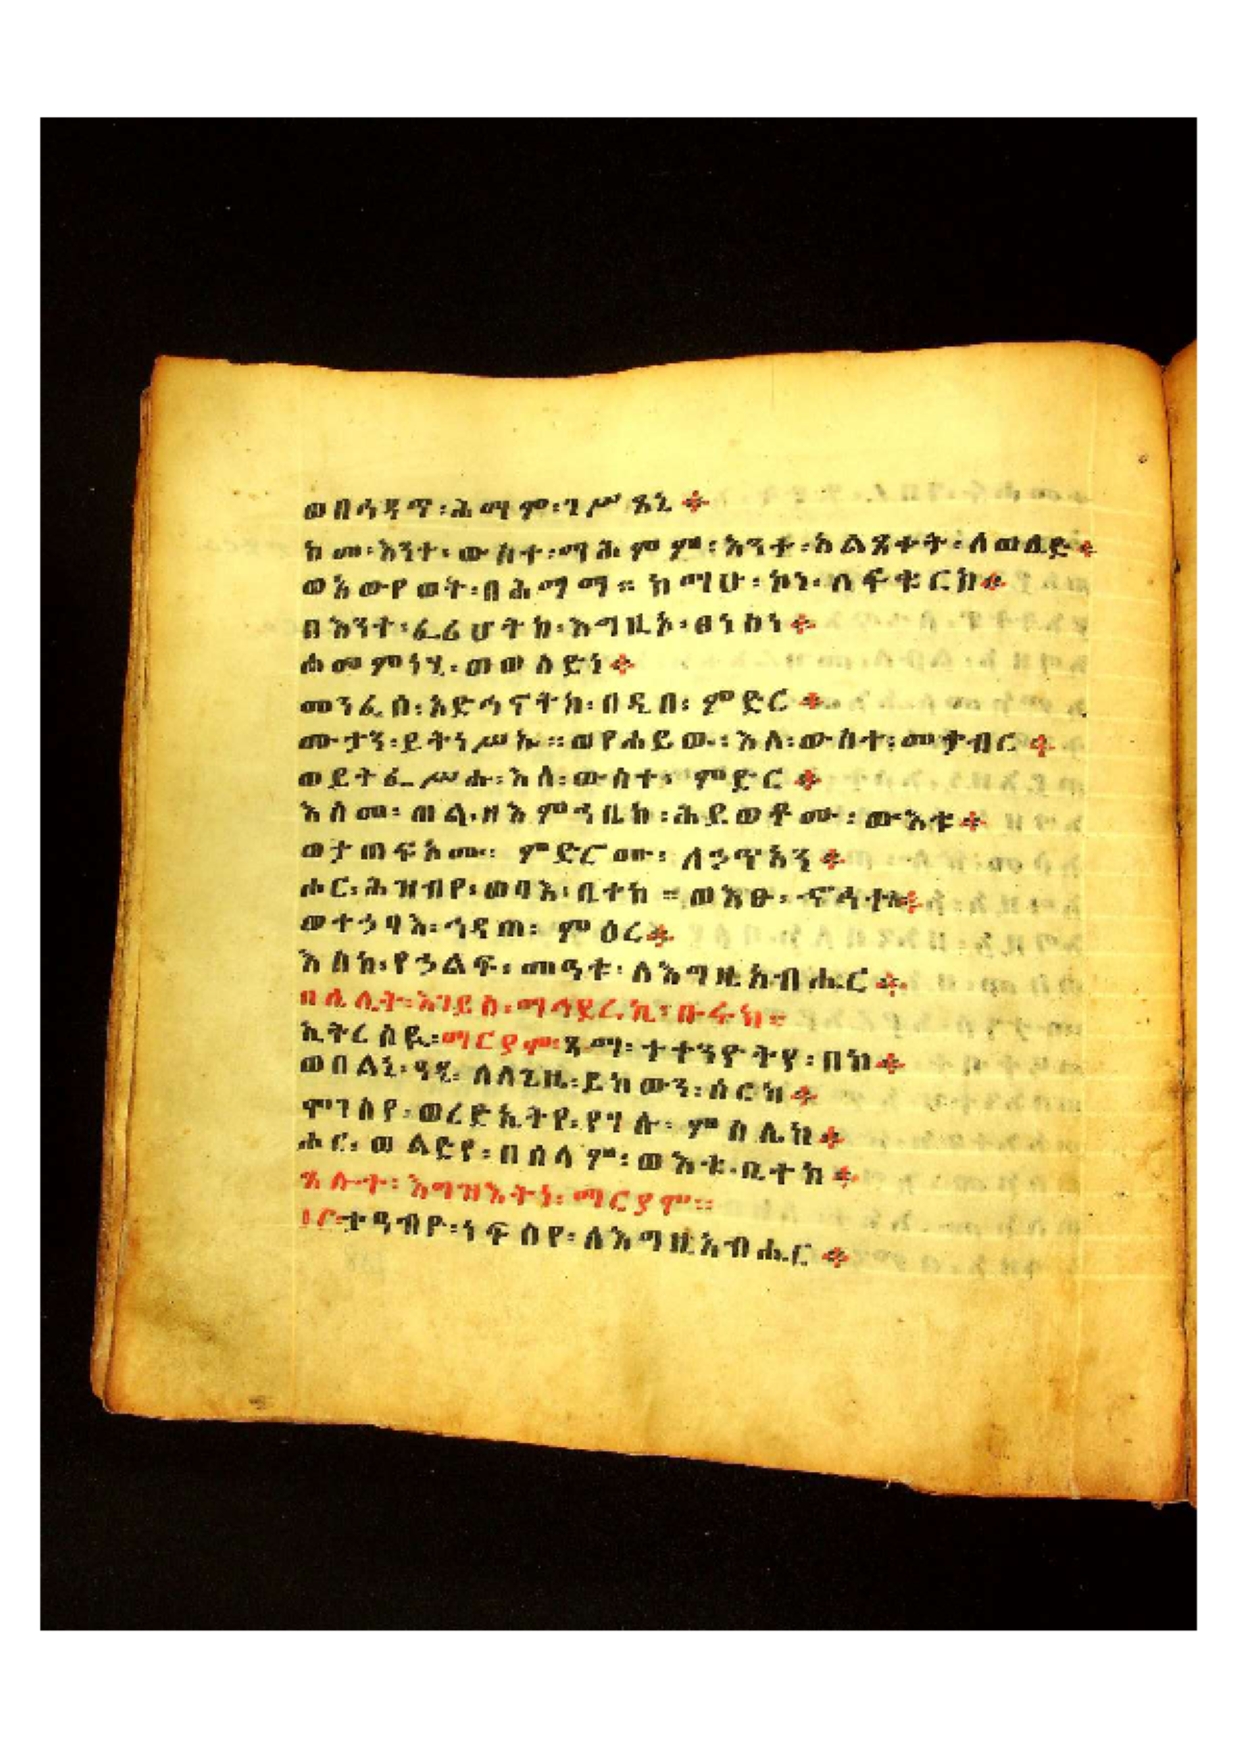 ወበሳዳጥ፡ሕማም፡ገሥጸኒ
ከመ፡እንተ፡ውስተ፡ማሕምም፡እንተ፡አልጸቀት፡ለወሊድ
ወአውየወት፡በሕማማ። ከማሁ፡ኮነ፡ለፍቁርከ
በእንተ፡ፈሪሆትከ፡እግዚኦ፡ፀነስነ
ሐመምነሂ፡ወወለድነ
መንፈሰ፡አድኅኖትከ፡በዲበ፡ምድር
ሙታን፡ይትነሥኡ። ወየሐይዉ፡እለ፡ውስተ፡መቃብር
ወይትፌሥሑ፡እለ፡ውስተ፡ምድር
እስመ፡ጠል፡ዘእምኀቤከ፡ሕይወቶሙ፡ውእቱ
ወታጠፍአሙ፡ ምድሮሙ፡ለኃጥአን
ሑር፡ሕዝብየ፡ወባእ፡ቤተከ። ወእፁ፡ኆኅተከ
ወተኃባእ፡ኅዳጠ፡ ምዕረ
እስከ፡የኃልፍ፡መዓቱ፡ለእግዚአብሔር
ኢትረስዪ፡ማርያም፡ጼማ፡ተተንዮትየ፡በከ
ወበልኒ፡ዓዲ፡ለለጊዜ፡ይኩውን፡ሰርከ
ሐር፡ወልድየ፡በሰላም፡ወእቱ፡ቤተከ
ጸሎተ፡እግዝእትነ፡ማርያም።
ተዓብዮ፡ነፍስየ፡ለእግዚአብሔር